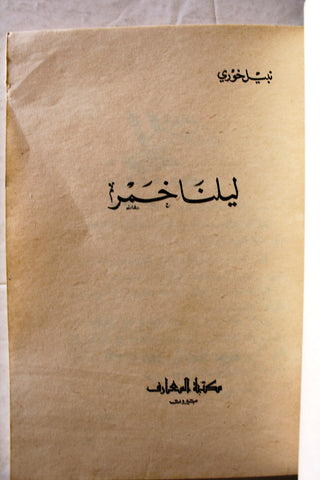 نبيل خوري
ليلنا خمر
مكتبة المعارف
بيروت